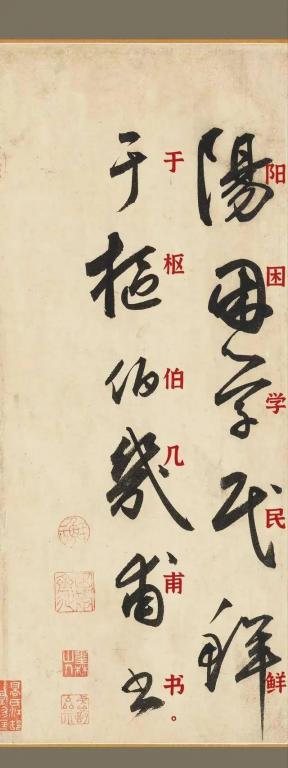 阳困学民鲜
陽困學民鮮
于枢伯几甫书。
于樞伯幾甫書